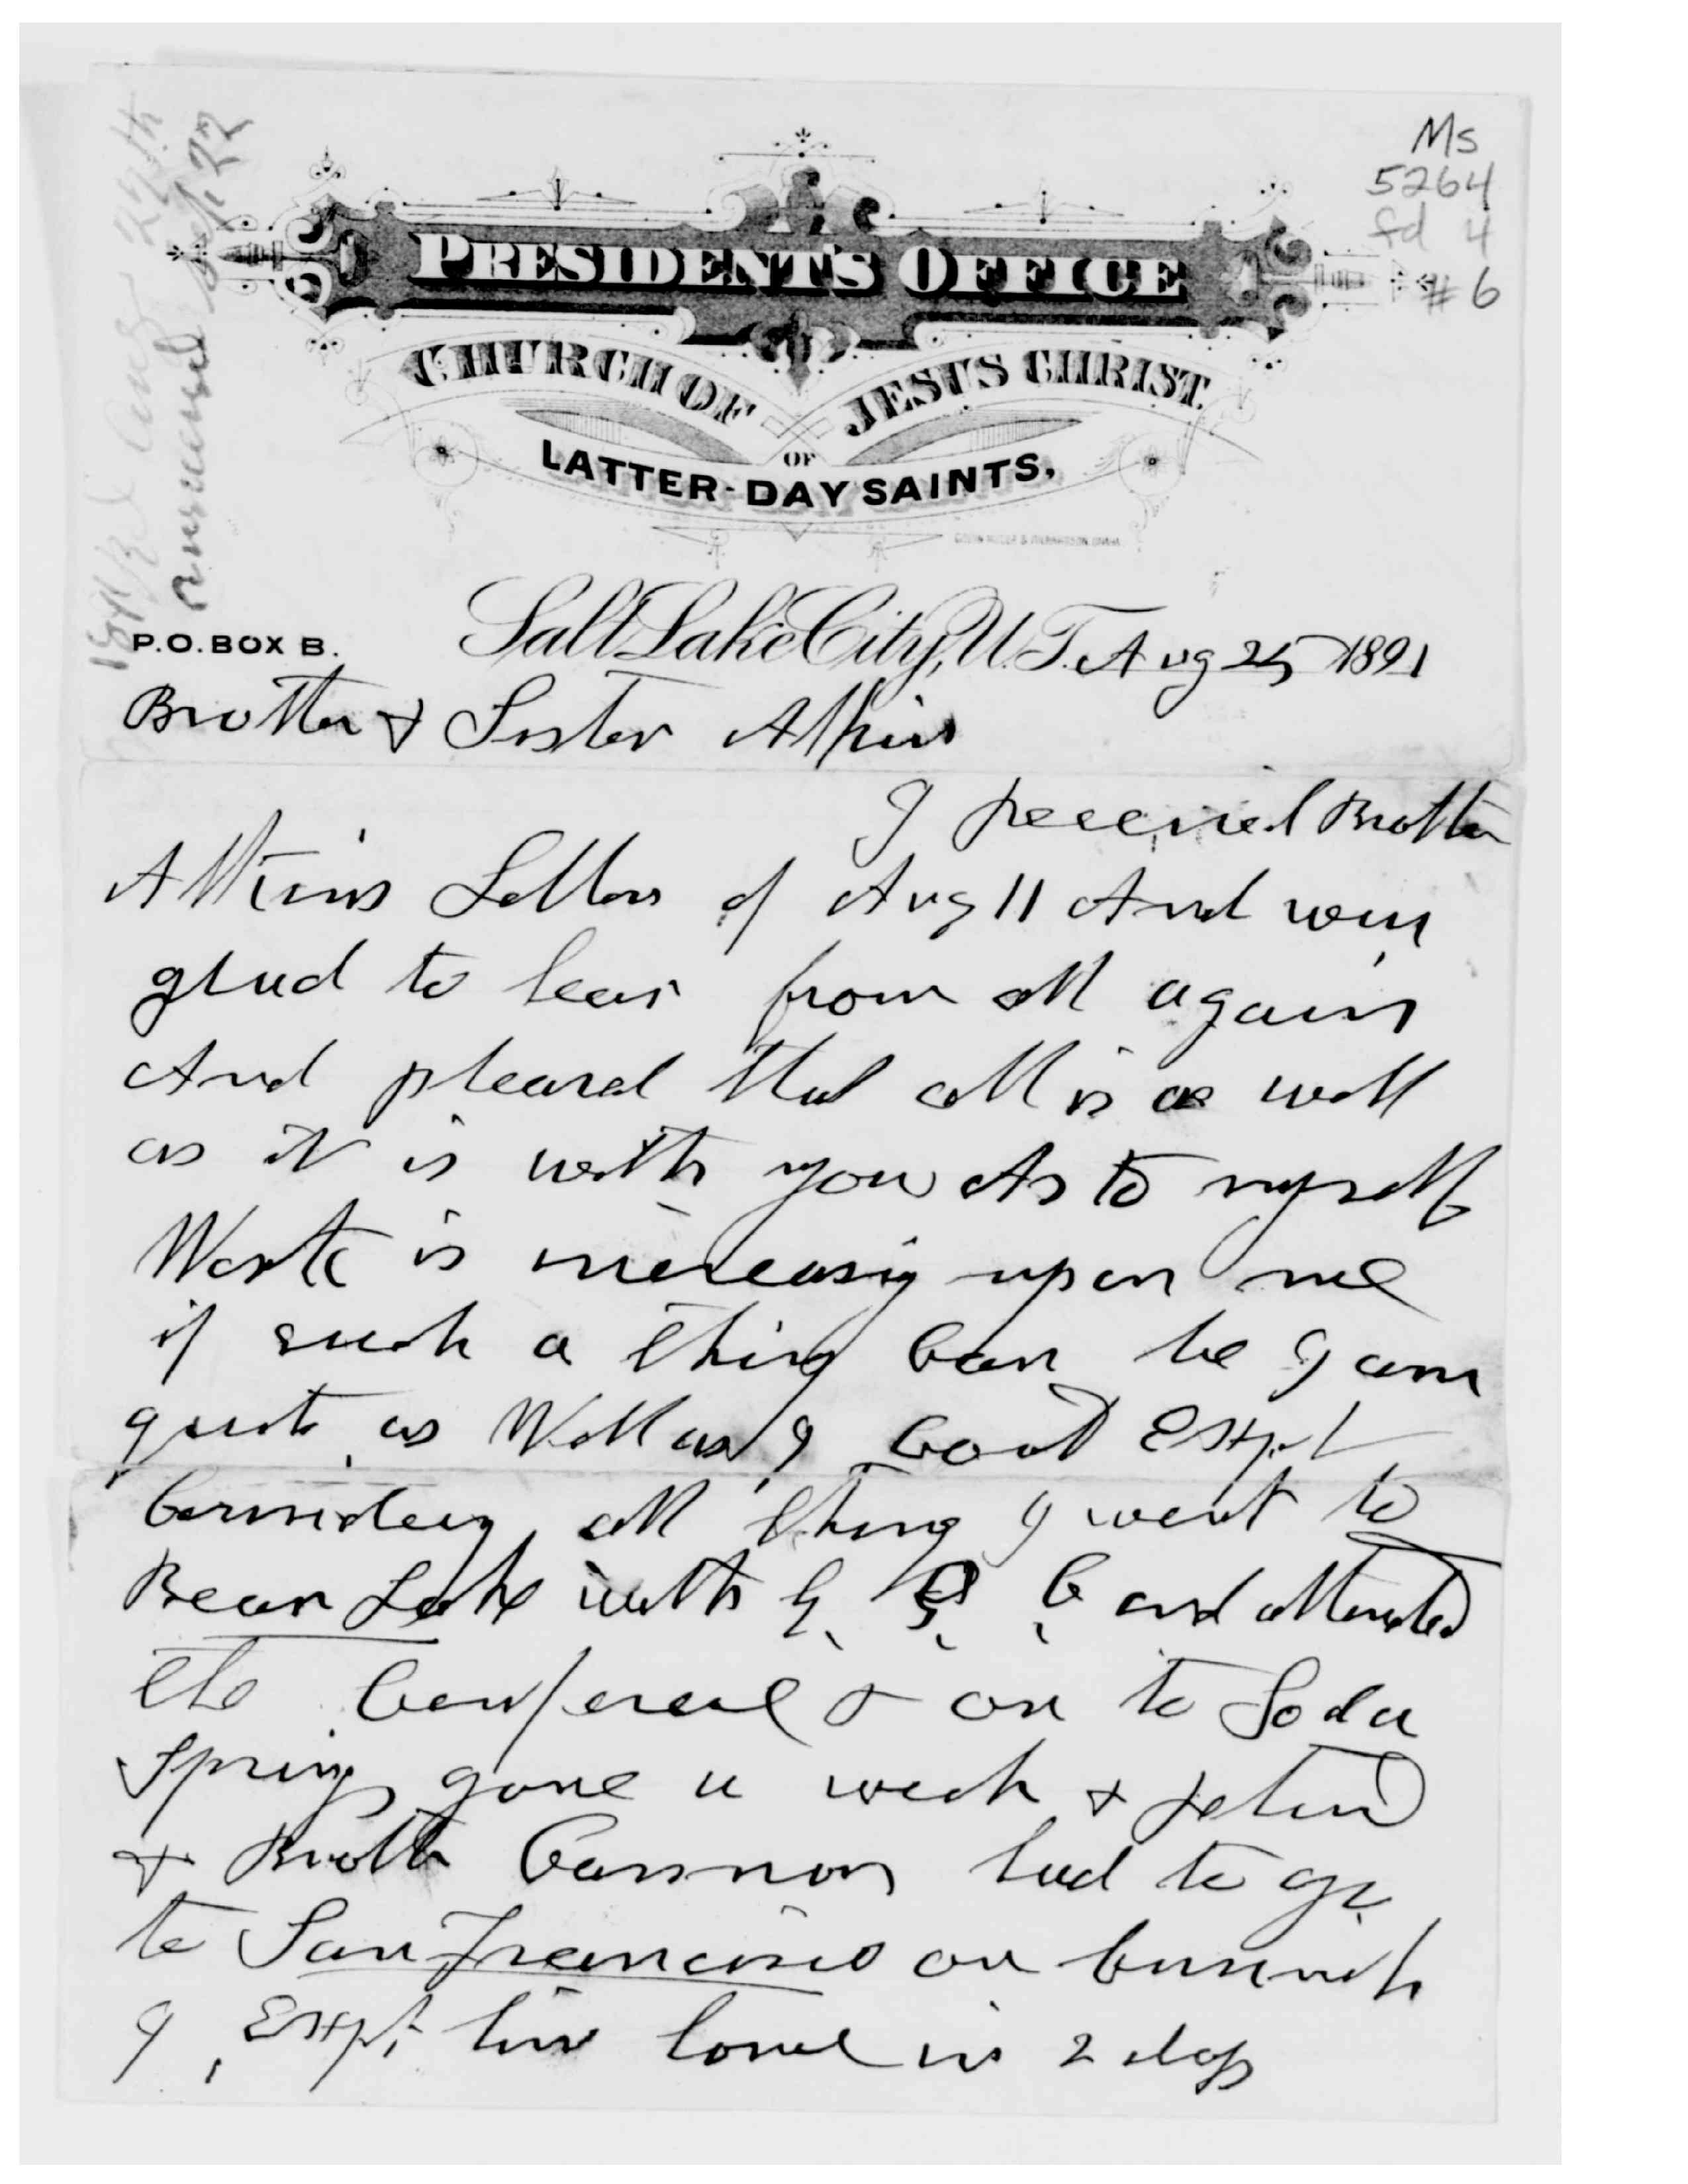 Ms
5264
fd 4
#6
Recd Aug 29th
Answered Sept 22
PRESIDENT'S OFFICE
CHURCH OF JESUS CHRIST
OF
LATTER-DAY SAINTS,
P.O. BOX B.
Salt Lake City, U.T. Aug 25 1891
Brother & Sister Atkin
I received Brother
Atkins Letter of Aug 11 And was
glad to hear from all again
And pleased that all is as well
as it is with you As to myself
Work is increasing upon me
if such a thing can be I am
quite as Well as I could Expt
Considering all thing I went to
Bear Lake with G. Q. C and attended
the Conference & on to Soda
Springs gone a week & returd
& Broth Cannon had to go
to San Francisco on business
I Expt him home in 2 days